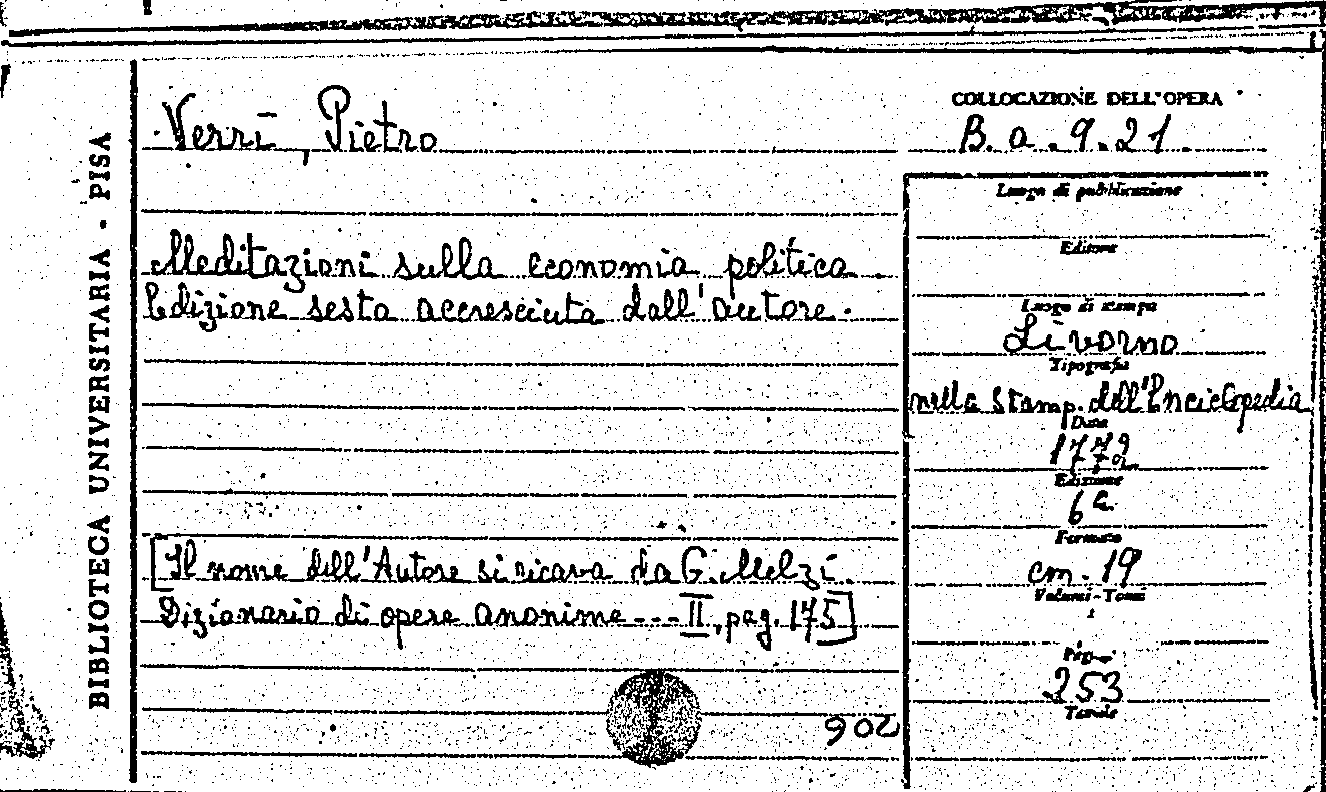 BIBLIOTECA UNIVERSITARIA - PISA
Verri, Pietro
Meditazioni sulla economia politica.
Edizione sesta accresciuta dall'autore.
[Il nome dell'Autore si ricava da G. Melzi.
Dizionario di opere anonime --- II, pag. 175]
206
COLLOCAZIONE DELL'OPERA
B. a. 9. 21.
Luogo di pubblicazione
Editore
Luogo di stampa
Livorno
Tipografia
nella Stamp. dell'Enciclopedia
Data
Edizione
6a
Formato
cm. 19
Volumi - Tomi
Pag.
253
Tavole